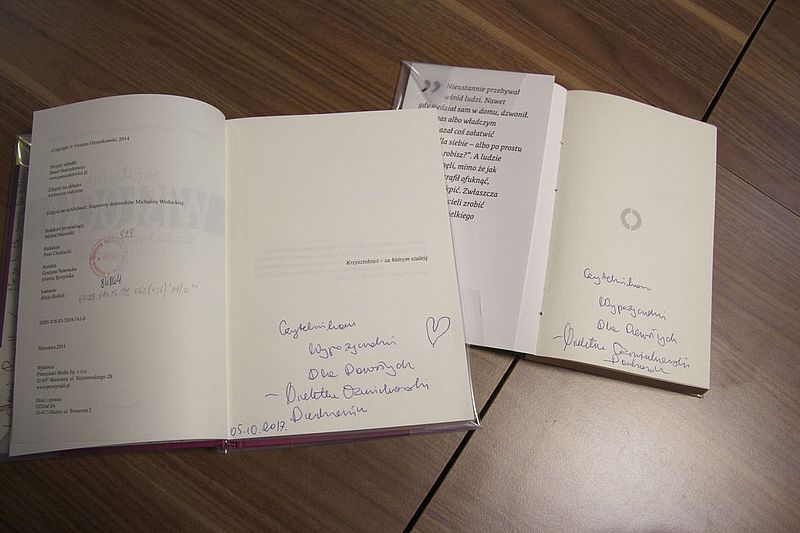 Copyright © Violetta Ozminkowski, 2014
Projekt okładki
Paweł Panczakiewicz
www.panczakiewicz.pl
Zdjęcie na okładce
Archiwum rodzinne
Zdjęcia na wyklejkach: fragmenty dzienników Michaliny Wisłockiej
Redaktor prowadzący
Michał Nalewski
Redakcja
Piotr Chojnacki
Korekta
Grażyna Nawrocka
Jolanta
Łamanie
Alicja Rudnik
ISBN 978-83-7839-741-0
Warszawa 2014
Wydawca
Prószyński Media Sp. z o.o.
02-697 Warszawa, ul. Rzymowskiego 28
www.proszynski.pl
Druk i oprawa
OZGraf SA
ul. Towarowa 2
84864
Krzysztofowi – za którym szaleję
Czytelnikom
Wypożyczalni
Dla Dorosłych
– Violetta Ozminkowski
05.10.2017.
„Nieustannie przebywał
wśród ludzi. Nawet
gdy siedział sam w domu, dzwonił.
as albo władczym
azał coś załatwić
la siebie – albo po prostu
robisz?”. A ludzie
ęli, mimo że jak
rafił ofuknąć,
pić. Zwłaszcza
cieli zrobić
elkiego
Czytelnikom
Wypożyczalni
Dla Dorosłych
– Violetta Ozminkowski